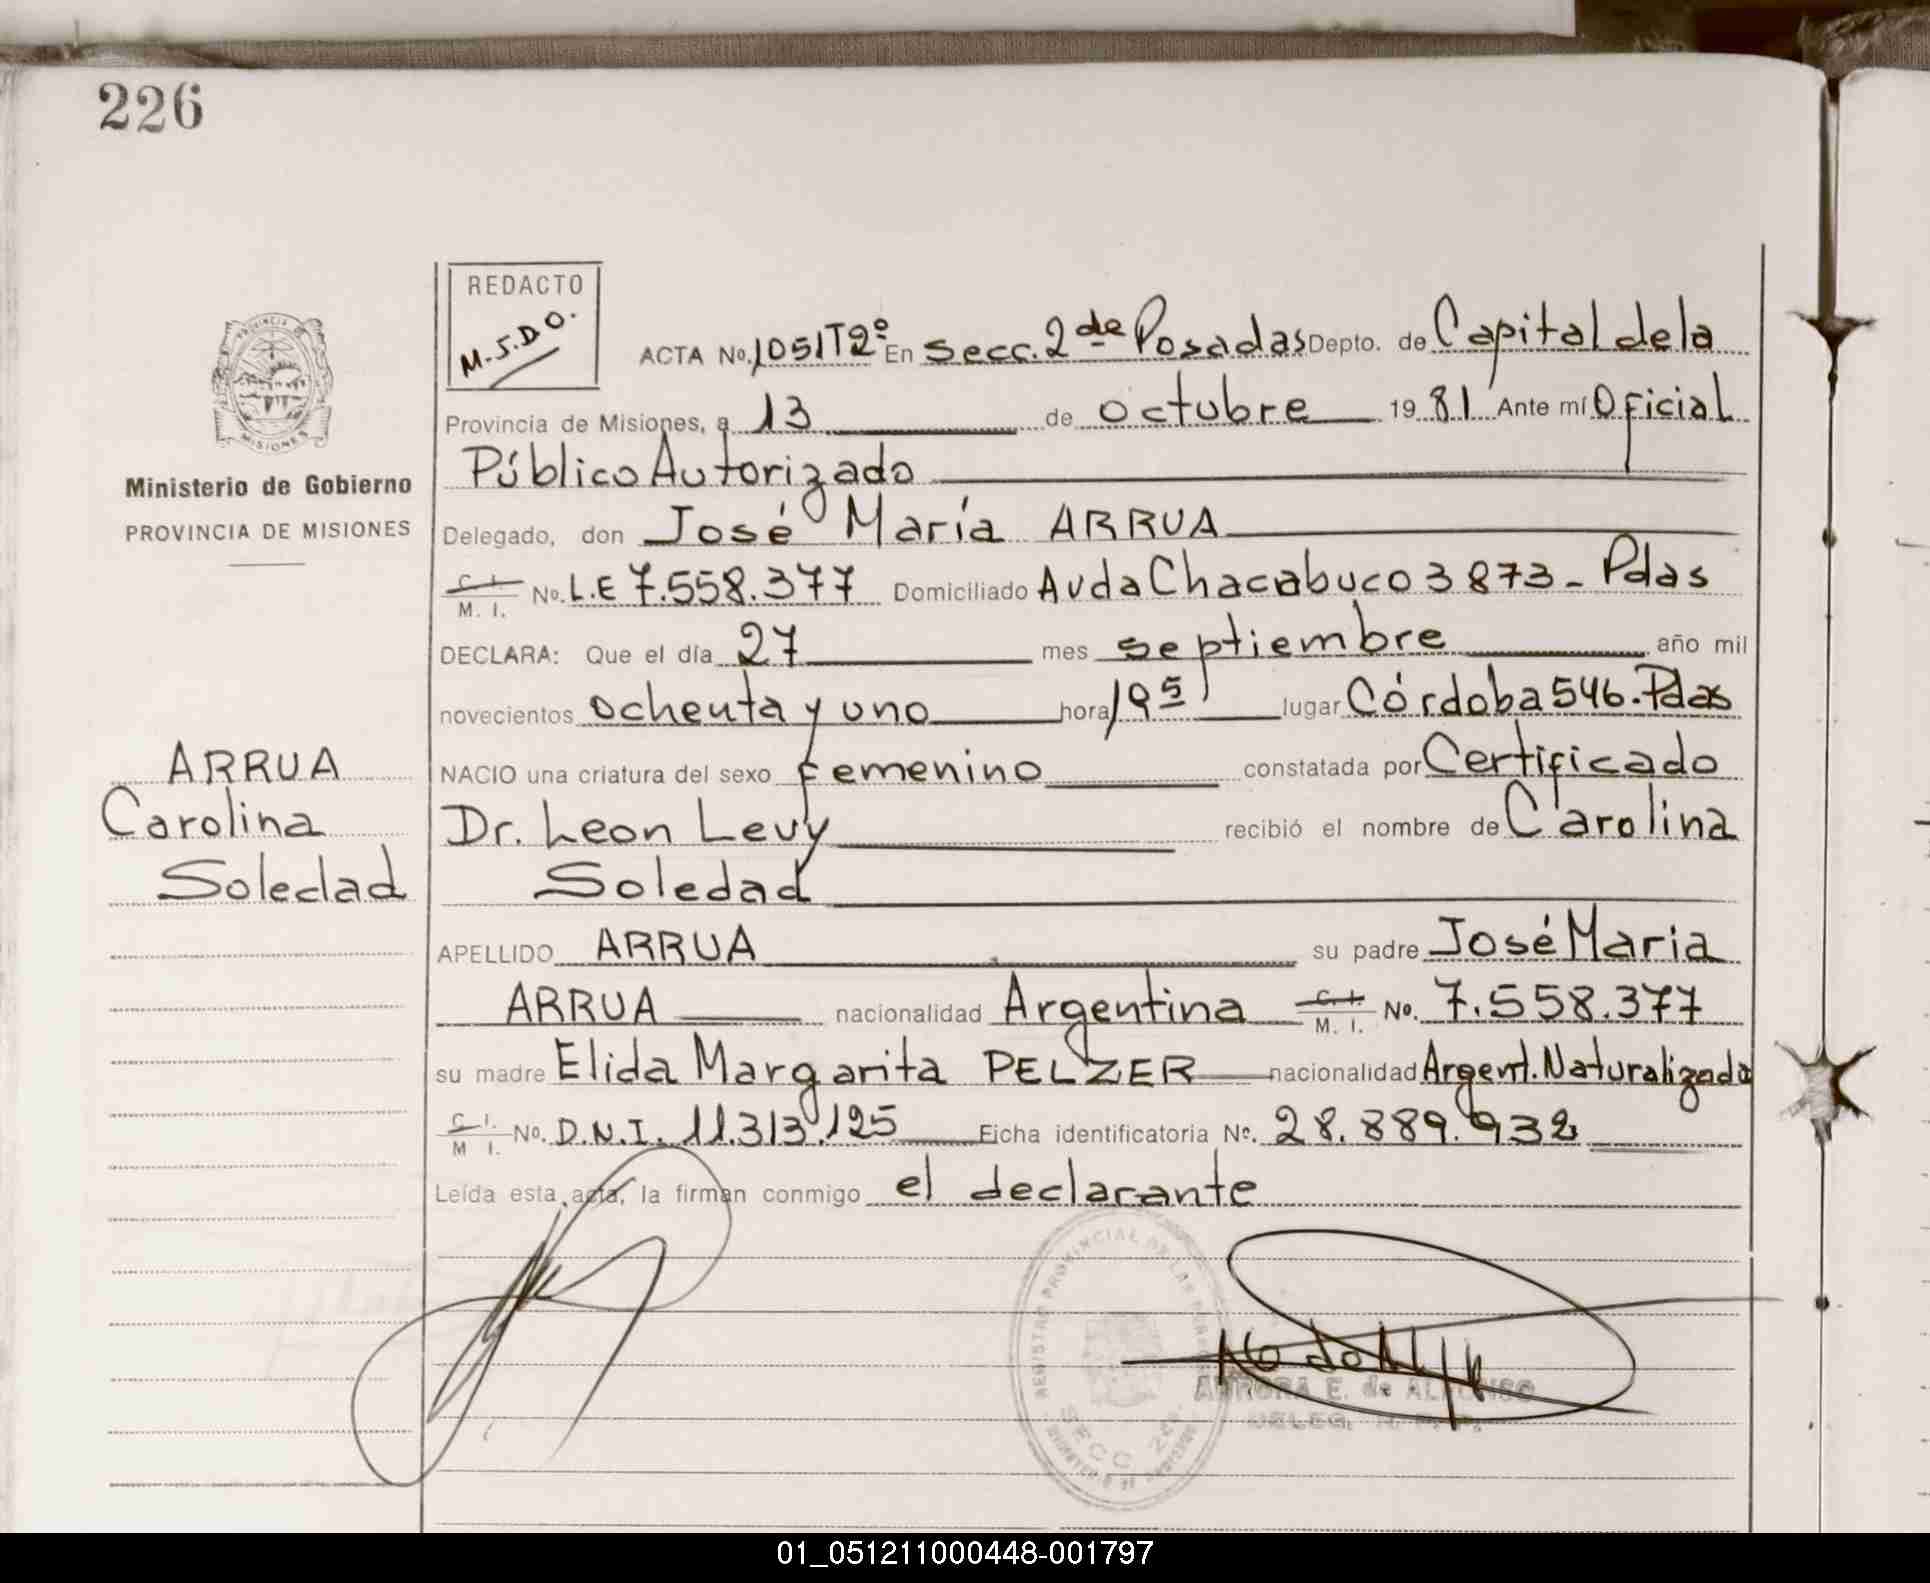 226
REDACTO
M.S.D.O.
ACTA No. 1051T2º En Secc. 2da Posadas Depto. de Capital de la
Provincia de Misiones, a 13 de octubre 19 81 Ante mí Oficial
Público Autorizado
Ministerio de Gobierno
PROVINCIA DE MISIONES
Delegado, don José María ARRUA
C. I.
M. I. No. L.E 7.558.377 Domiciliado Avda Chacabuco 3873 - Pdas
DECLARA: Que el día 27 mes septiembre año mil
novecientos ochenta y uno hora 19 5 lugar Córdoba 546. Pdas
ARRUA
Carolina
Soledad
NACIO una criatura del sexo femenino constatada por Certificado
Dr. Leon Levy recibió el nombre de Carolina
Soledad
APELLIDO ARRUA su padre José Maria
ARRUA nacionalidad Argentina C. I.
M. I. No. 7.558.377
su madre Elida Margarita PELZER nacionalidad Argent. Naturalizada
C. I.
M I. No. D.N.I. 11.313.125 Ficha identificatoria No. 28.889.932
Leída esta acta, la firman conmigo el declarante
REGISTRO PROVINCIAL DE LAS
SECC 2da
AURORA E. de ALFONSO
DELEG.
01_051211000448-001797